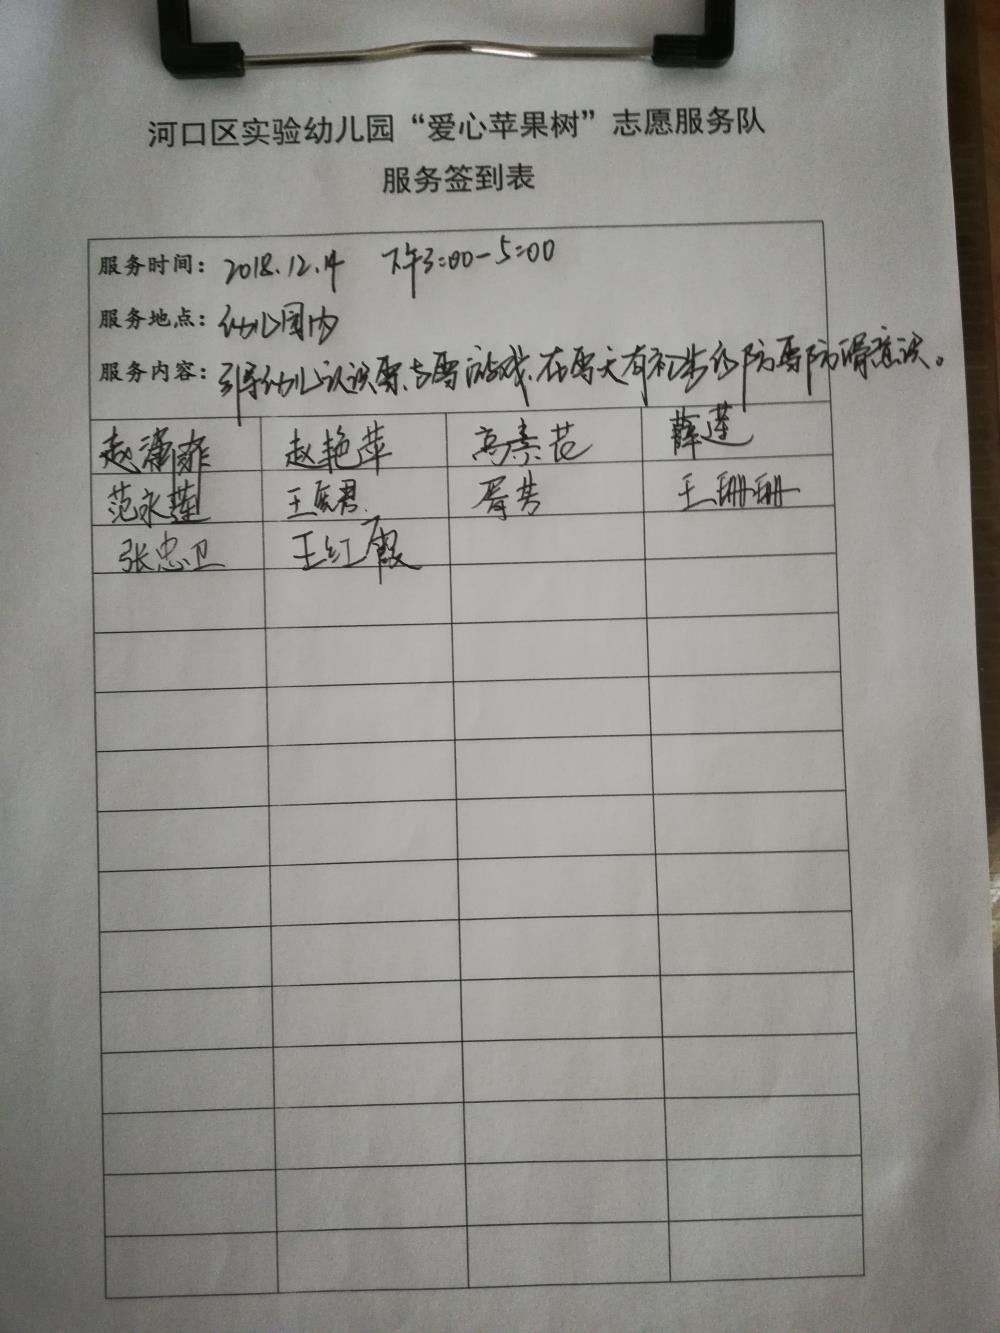 河口区实验幼儿园“爱心苹果树”志愿服务队
服务签到表
服务时间：2018.12.14 下午3:00-5:00
服务地点：幼儿园内
服务内容：引导幼儿认识雪,与雪游戏,在雪天有初步的防雪防滑意识。
赵潇菲 赵艳萍 高素范 薛莲
范永莲 王 君 胥芳 王珊珊
张忠卫 王红霞